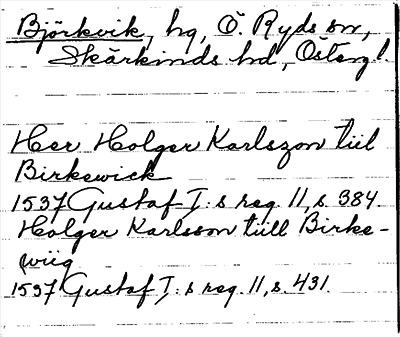 Björkvik, hg, Ö. Ryds sn,
Skärkinds hd, Östergl.
Her Holger Karlszon tiil
Birkewick
1537 Gustaf I:s reg. 11, s. 384.
Holger Karlsson tiill Birke-
wiig
1537 Gustaf I:s reg. 11, s. 431.